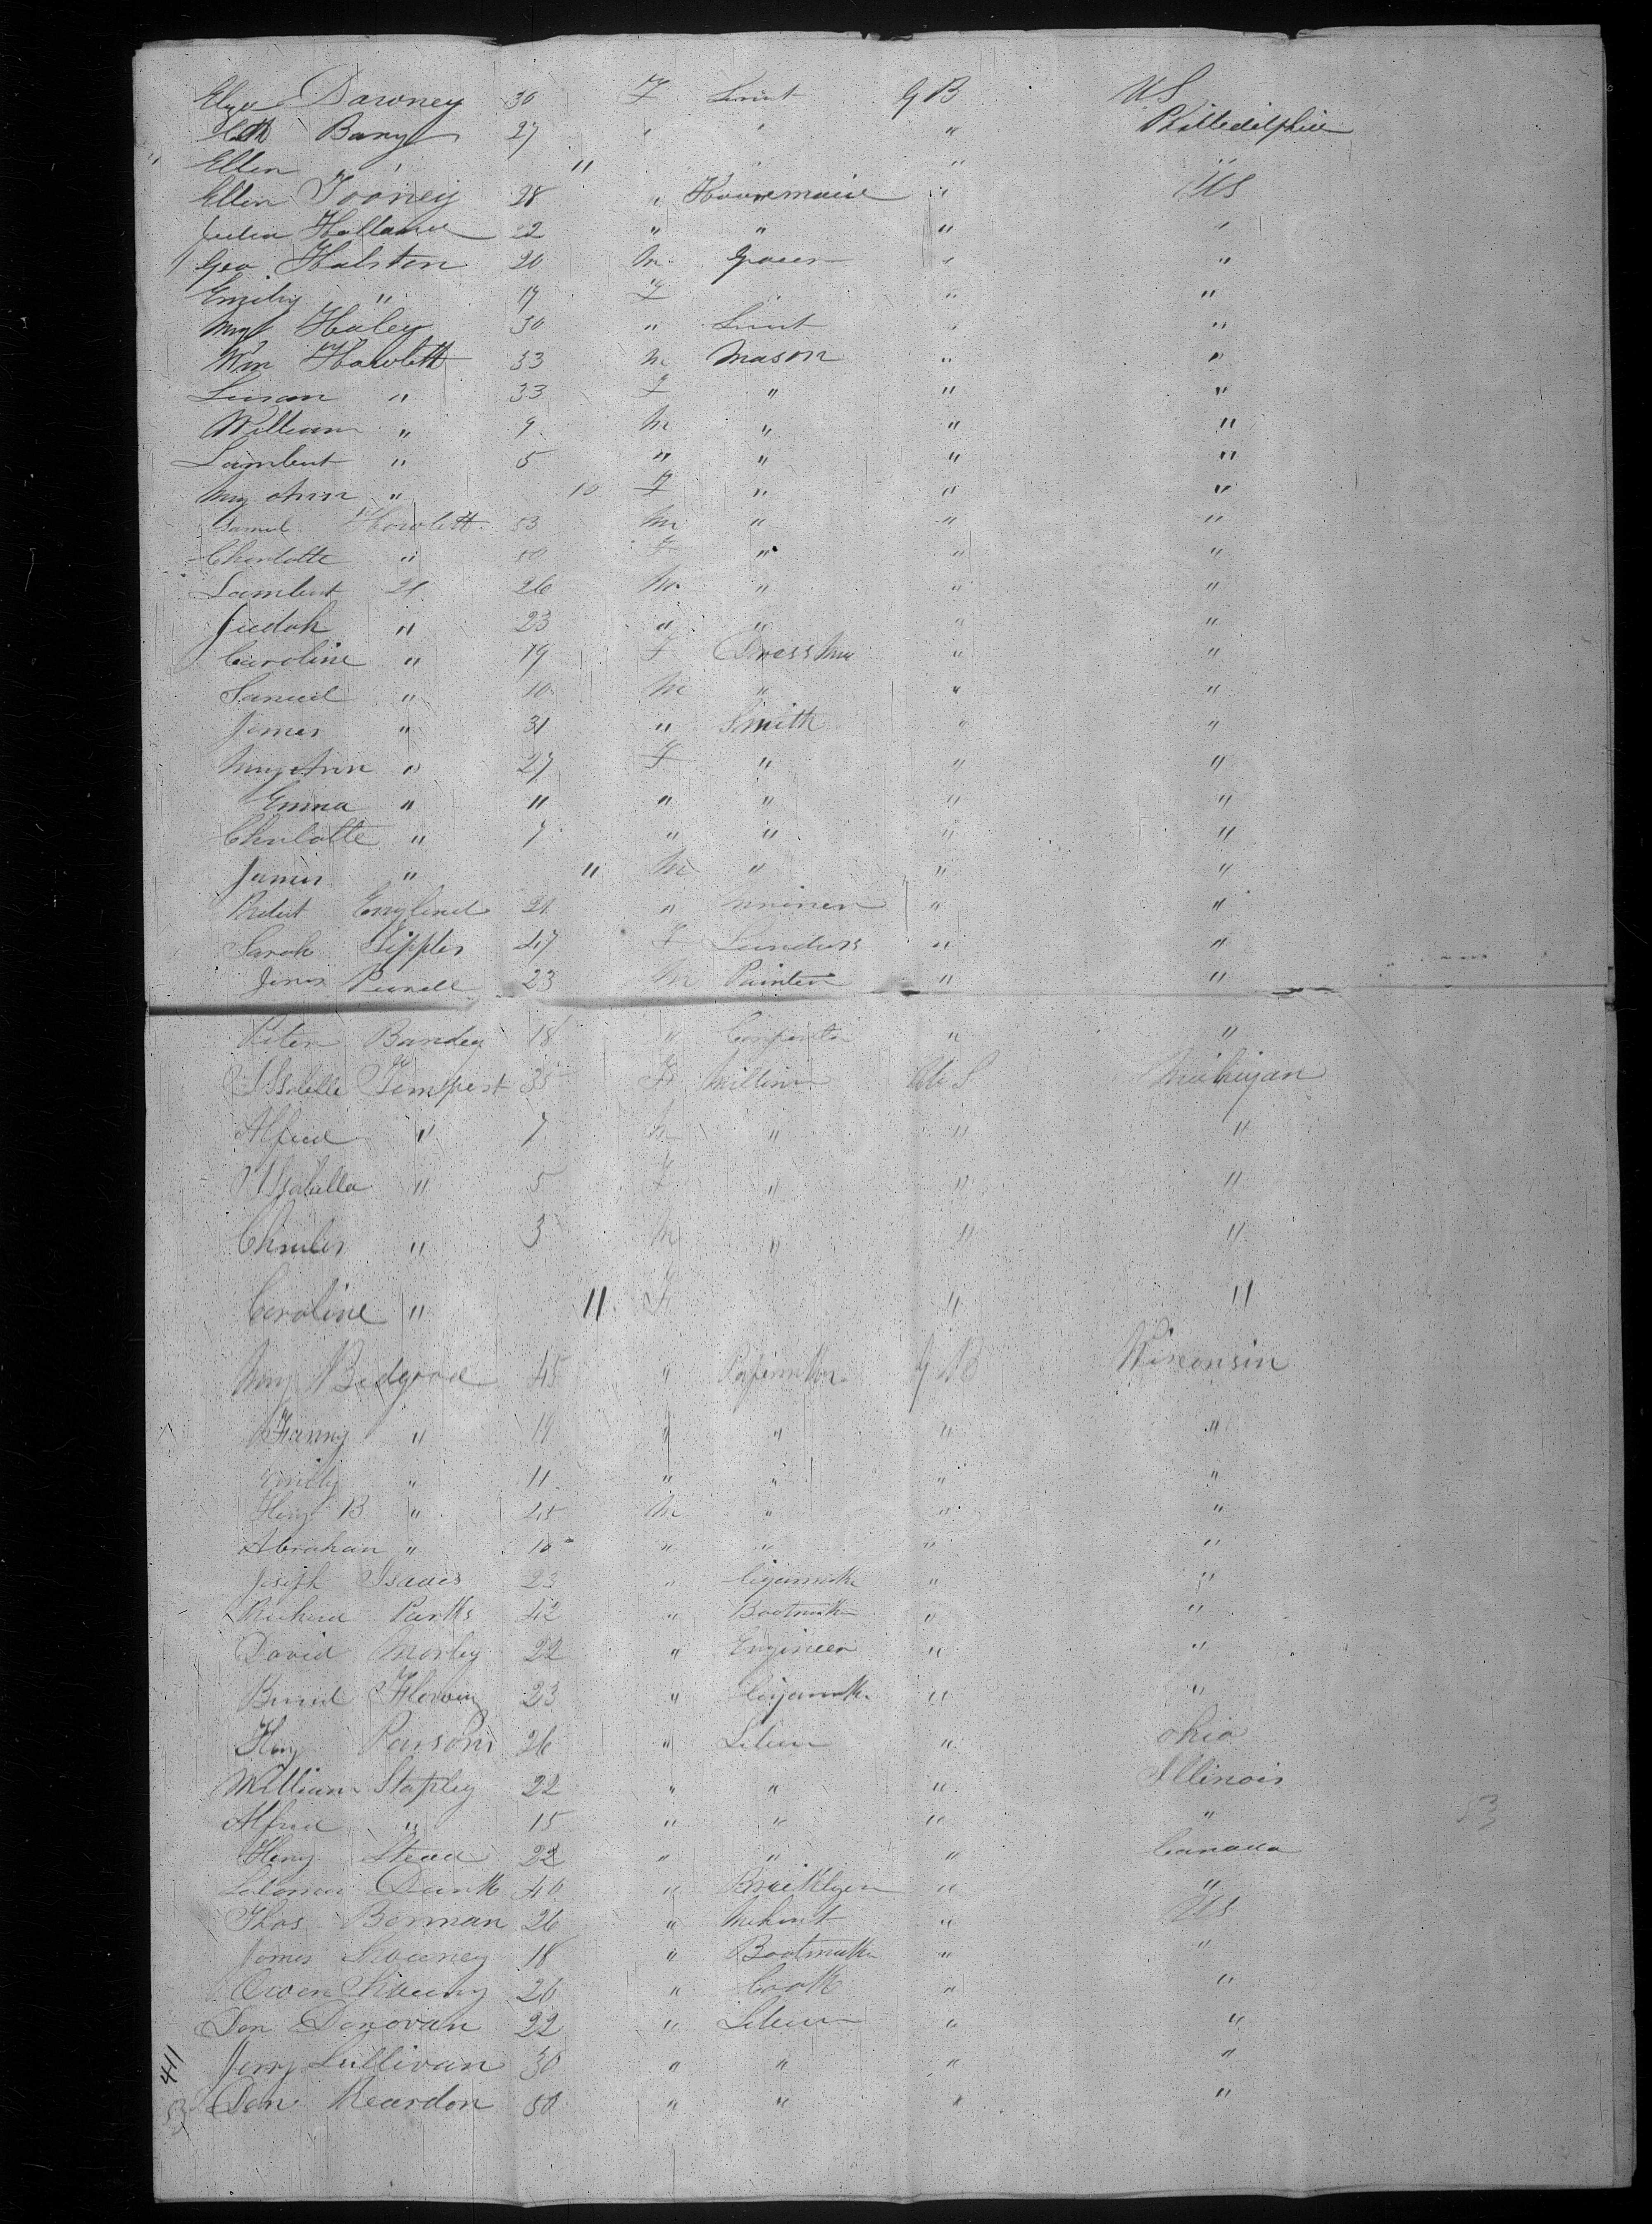 Eliza Downey 30 F Servt G B US
Eliz Barry 27 " " " Philledelphia
" Ellen " 11 " "
Ellen Tooney 28 " Housemaid " US
Julia Holland 22 " " " "
Geo Halston 20 M Grocer " "
Emily " 19 F " " "
Mgt Haley 30 " Servt " "
Wm Howlett 33 M Mason " "
Susan " 33 F " " "
William " 9 M " " "
Lambert " 5 " " " "
Mry Ann " 10 F " " "
Samul Howlett 53 M " " "
Charlotte " 50 F " " "
Lambert 21 26 M " " "
Judah " 23 " " " "
Caroline " 19 F Dress Mkr " "
Samuel " 10 M " " "
James " 31 " Smith " "
Mary Ann " 27 F " " "
Emma " 11 " " " "
Charlotte " 7 " " " "
James " 11 M " " "
Robert England 21 " "
Sarah Tippler 47 F Laundrss " "
James 23 M Painter " "
Peter 18 " Carpenter " "
Isabella Tempest 35 F Milliner U S Michigan
Alfred " 7 M " " "
Isabella " 5 F " " "
Charles " 3 M " " "
Caroline " 11 F " "
Mary Bidgood 45 " G B Wisconsin
Fanny " 19 " " " "
Emily " 11 " " " "
Heny B " 45 M " " "
Abraham " 10 " " " "
Joseph Isaacs 23 " Cigarmkr " "
Richard Parks 42 " Bootmkr " "
David Morley 22 " Engineer " "
23 " Cigarmkr " "
Heny Parsons 26 " Labour " Ohio
William Stapley 22 " " " Illinois
Alfred " 15 " " " " 53
Heny Stead 22 " " " Canada
Solomon Dunk 40 " Bricklyer " "
Thos Borman 26 " " US
James Sweeney 18 " Bootmaker " "
Owen Sweeny 20 " Cook " "
Dan Donovan 22 " Labour " "
Jerry Sullivan 30 " " " "
Dan Reardon 50 " " " "
411
53